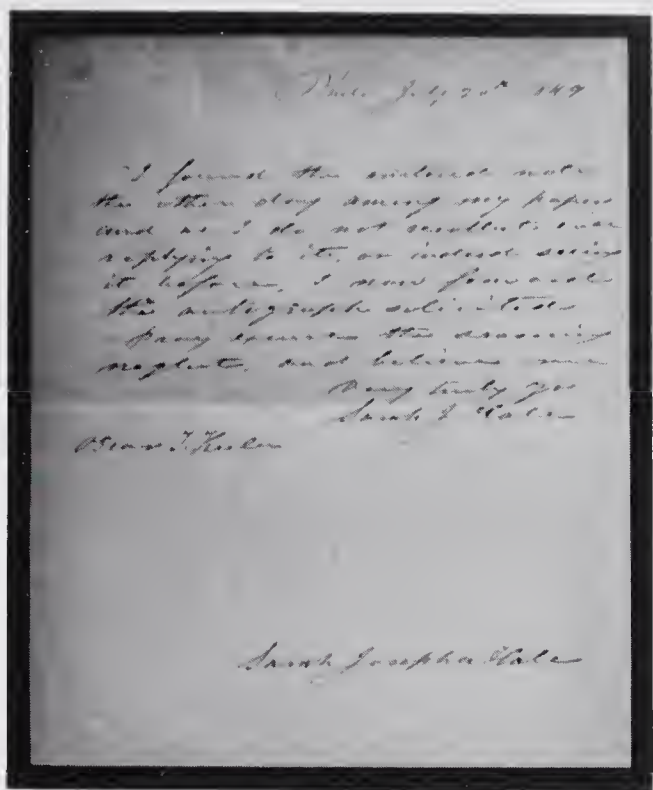 Phila July 20th 1849
I found the enclosed note
the other day among my papers
and as I do not recollect ever
replying to it, or indeed seeing
it before, I now forward
the autograph solicited
Pray excuse the seeming
neglect, and believe me
Very truly yrs
Sarah J Hale
Sarah Josepha Hale